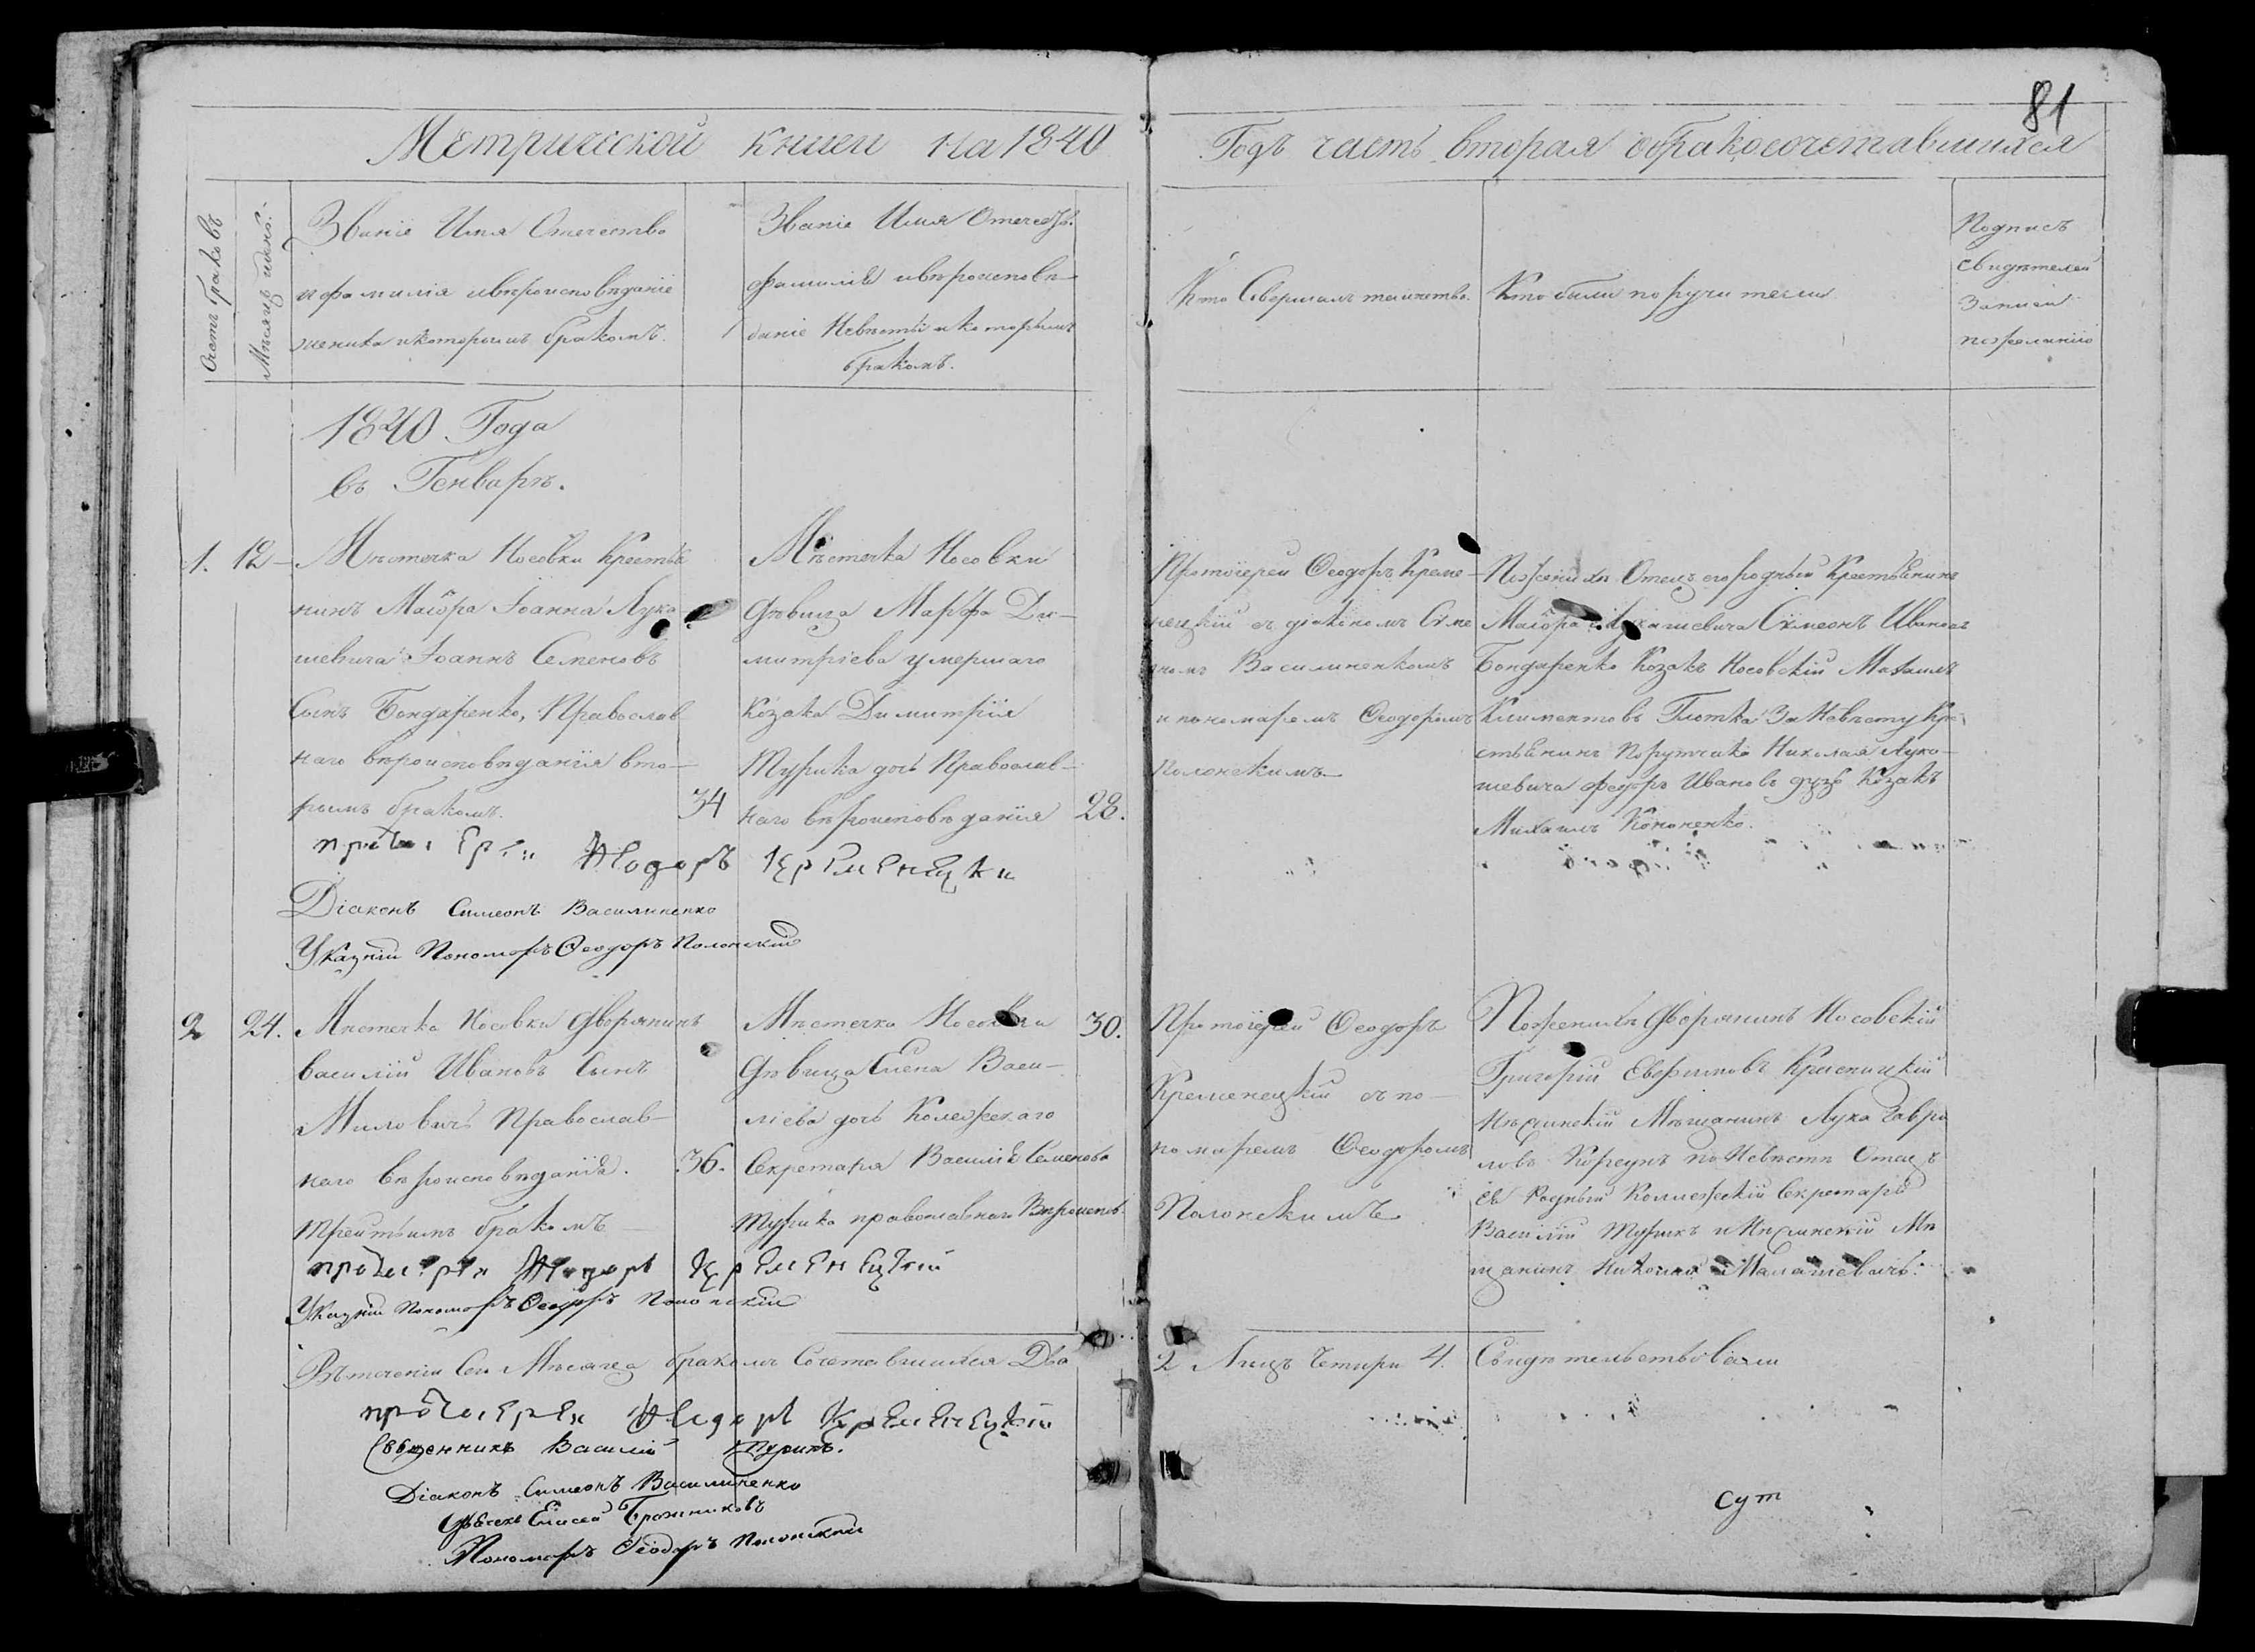 81
Метрической книги на 1840
Годъ часть вторая обракосочетавшихся
Счетъ браковъ
Мѣсяцъ идень.
Званіе Имя Отечество
и фамилія ивѣроисповѣданіе
жениха икоторымъ бракомъ.
Званіе Имя Отечеств.
фамилія ивѣроисповѣ-
даніе Невѣсты икоторымъ
бракомъ.
Кто Совершалъ таинство.
Кто были поручители
Подпись
свидѣтелей
Записи
пожеланію
1840 Года
въ Генварѣ.
1. 12
Мѣстечка Носовки Крестья
нинъ Маіора Іоанна Лука
шевича Іоаннъ Семеновъ
Сынъ Бондаренко, Православ
наго вѣроисповѣданія вто-
рымъ бракомъ.
34
Мѣстечка Носовки
дѣвица Марфа Ди-
митріева умершаго
Козака Димитрія
Турика дочь Православ-
наго вѣроисповѣданія
22.
Протоіерей Ѳеодоръ Креме-
нецкій съ діакономъ Симе
ономъ Василиненкомъ
и пономаремъ Ѳеодоромъ
Полонскимъ
Поженихѣ Отецъ его родный Крестьянинъ
Маіора Лукашевича Симеонъ Ивановъ
Бондаренко Козакъ Носовскій Михаилъ
Климентовъ Глотка За Невѣсту Кре
стьянинъ Поручика Николая Лука-
шевича Федоръ Ивановъ козакъ
Михаилъ Кононенко.
протоіерей Ѳеодоръ Кременецки
Діаконъ Симеонъ Василиненко
Указный Пономаръ Ѳеодоръ Полонскій
2 24.
Мѣстечка Носовки дворянинъ
василій Ивановъ Сынъ
Миловичъ Православ-
наго вѣроисповѣданія.
третьимъ бракомъ
36.
Мѣстечка Носовки
дѣвица Елена Васи-
ліева дочь Колежскаго
Секретаря Василія Семенова
Турика православнаго Вѣроиспов.
30.
Протоіерей Ѳеодоръ
Кременецкій съ по-
номаремъ Ѳеодоромъ
Полонскимъ
Поженихѣ дворянинъ Носовскій
Григорій Евфимовъ Красницкій
Нѣжинскій Мѣщанинъ Лука Гаври
ловъ Корсунъ по Невѣстѣ Отецъ
ея Родный Коллежскій Секретарь
Василій Турикъ и Нѣжинскій Мѣ
щанинъ Николай Малашевичъ.
протоіерей Ѳеодоръ Кременецкій
Указный Пономаръ Ѳеодоръ Полонскій
Втеченіи Сего Мѣсяца бракомъ Сочетавшихся Два
2 Лицъ Четыри 4. Свидѣтельствовали
протоіерей Ѳеодоръ Кременецкій
Священникъ Василій Турикъ.
Діаконъ Симеонъ Василиненко
Елисей Бражниковъ
Пономаръ Ѳеодоръ Полонскій
сут